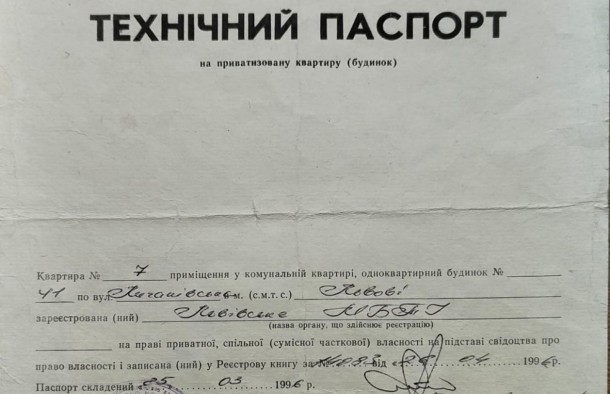 ТЕХНІЧНИЙ ПАСПОРТ
на приватизовану квартиру (будинок)
Квартира № 7 приміщення у комунальній квартирі, одноквартирний будинок №
41 по вул. Личаківська м. (с.м.т.с.) Львові
зареєстрована (ний) Львівське МБТІ
(назва органу, що здійснює реєстрацію)
на праві приватної, спільної (сумісної часткової) власності на підставі свідоцтва про
право власності і записана (ний) у Реєстрову книгу за № від 26 04 1996 р.
Паспорт складений 25. 03 1996 р.